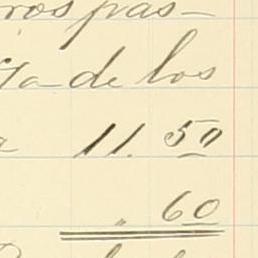 ros pas-
ta de los
a 11. 50
" 60